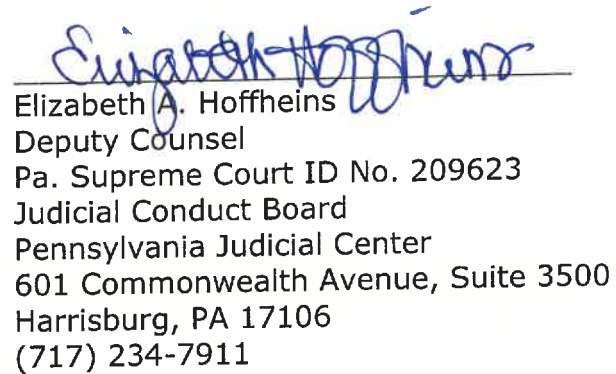 Elizabeth Hoffheins
Elizabeth A. Hoffheins
Deputy Counsel
Pa. Supreme Court ID No. 209623
Judicial Conduct Board
Pennsylvania Judicial Center
601 Commonwealth Avenue, Suite 3500
Harrisburg, PA 17106
(717) 234-7911